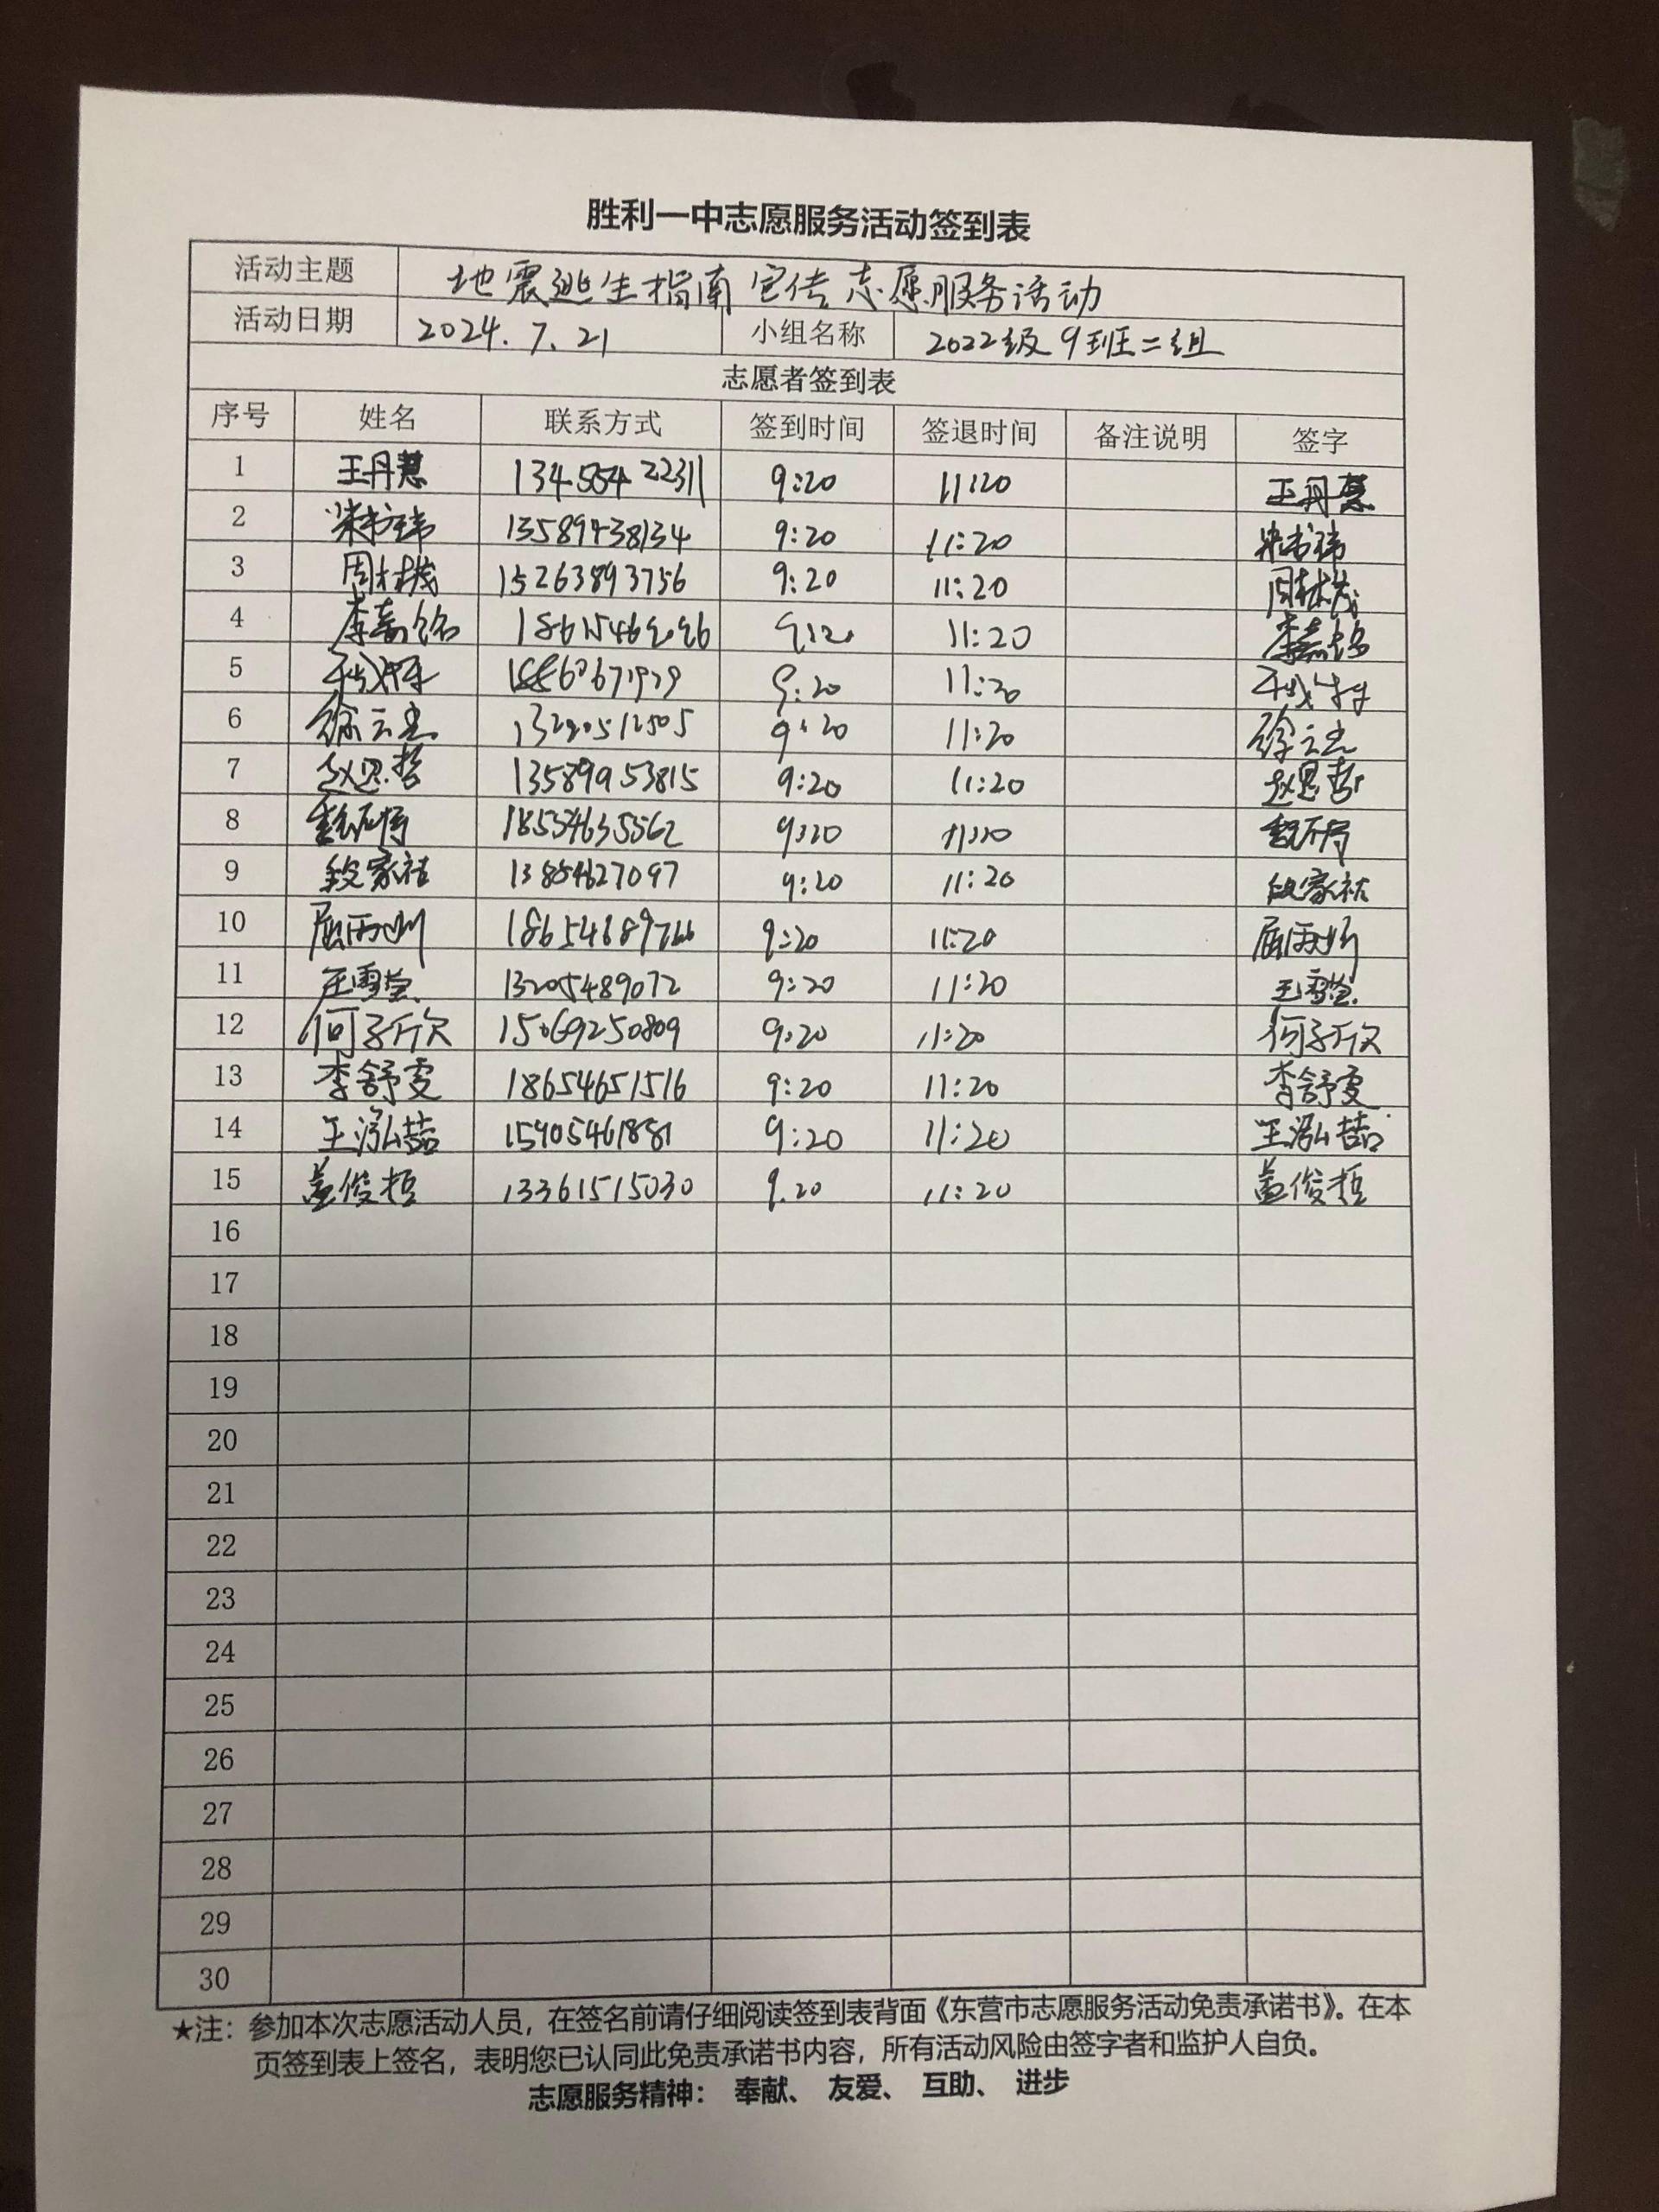 胜利一中志愿服务活动签到表
活动主题 地震逃生指南宣传志愿服务活动
活动日期 2024.7.21 小组名称 2022级9班二组
志愿者签到表
序号 姓名 联系方式 签到时间 签退时间 备注说明 签字
1 王丹慧 13455422311 9:20 11:20 王丹慧
2 13589438134 9:20 11:20
3 周林茂 15263893756 9:20 11:20 周林茂
4 李嘉铭 9:20 11:20 李嘉铭
5 9:20 11:20
6 徐云杰 9:20 11:20 徐云杰
7 赵思哲 13589953815 9:20 11:20 赵思哲
8 18554635562 9:20 11:20
9 段家祜 13854627097 9:20 11:20 段家祜
10 9:20 11:20
11 王雪莹 13205489072 9:20 11:20 王雪莹
12 何子欣 15069250809 9:20 11:20 何子欣
13 李舒雯 18654651516 9:20 11:20 李舒雯
14 王泓喆 15905461881 9:20 11:20 王泓喆
15 盖俊哲 13361515030 9.20 11:20 盖俊哲
16
17
18
19
20
21
22
23
24
25
26
27
28
29
30
★注：参加本次志愿活动人员，在签名前请仔细阅读签到表背面《东营市志愿服务活动免责承诺书》。在本
页签到表上签名，表明您已认同此免责承诺书内容，所有活动风险由签字者和监护人自负。
志愿服务精神： 奉献、 友爱、 互助、 进步